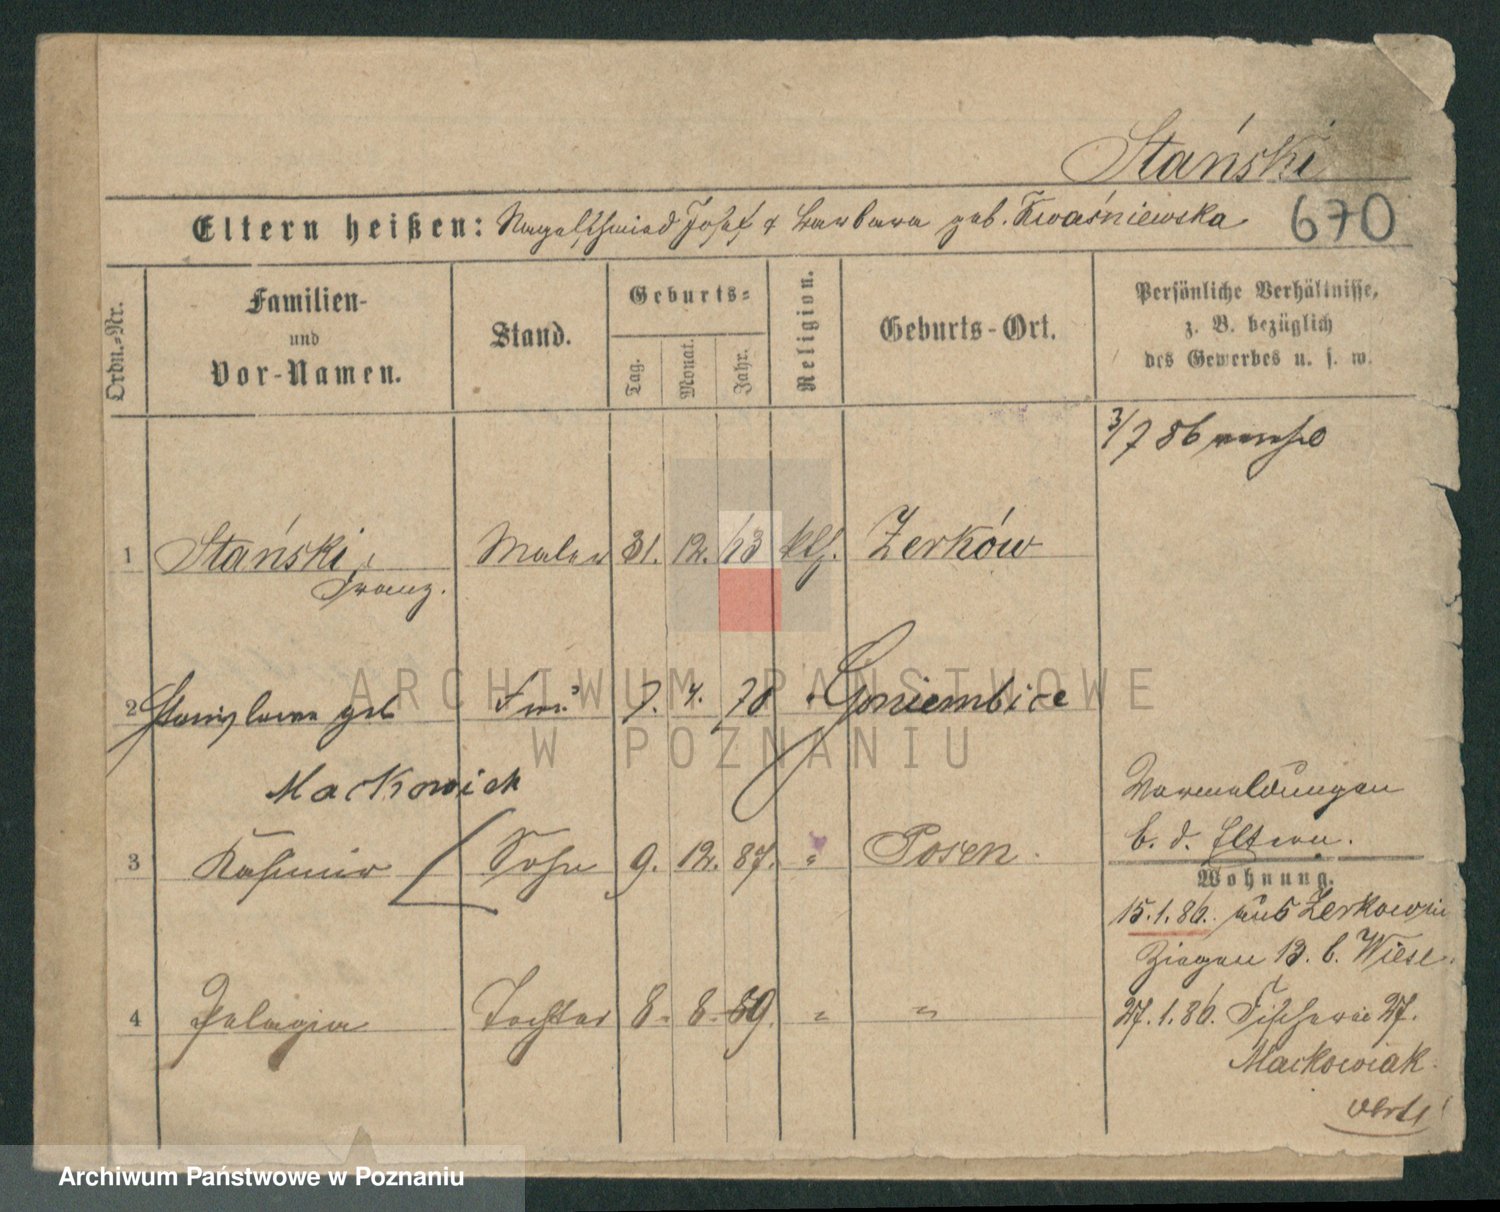 Stański
Eltern heißen: Nagelschmied Josef & Barbara geb. Kwaśniewska 670
Ordn.-Nr.
Familien-
und
Vor-Namen.
Stand.
Geburts-
Tag. Monat. Jahr.
Religion.
Geburts-Ort.
Persönliche Verhältnisse,
z. B. bezüglich
des Gewerbes u. s. w.
3/7 86
1 Stański Maler 31. 12. 63 kth. Zerków
Franz.
2 Stanislawa geb Frau 7. 4. Goniembice
Mackowiak
3 Kasimir Sohn 9. 12. 87. " Posen.
4 Pelagia Tochter 8. 8. 89. " "
Vermeldungen
b. d. Eltern.
Wohnung.
15.1.86. aus Zerkow
13. b. Wiese.
27.1.86. Fischerei 27.
Mackowiak.
verte!
ARCHIWUM PAŃSTWOWE
W POZNANIU
Archiwum Państwowe w Poznaniu